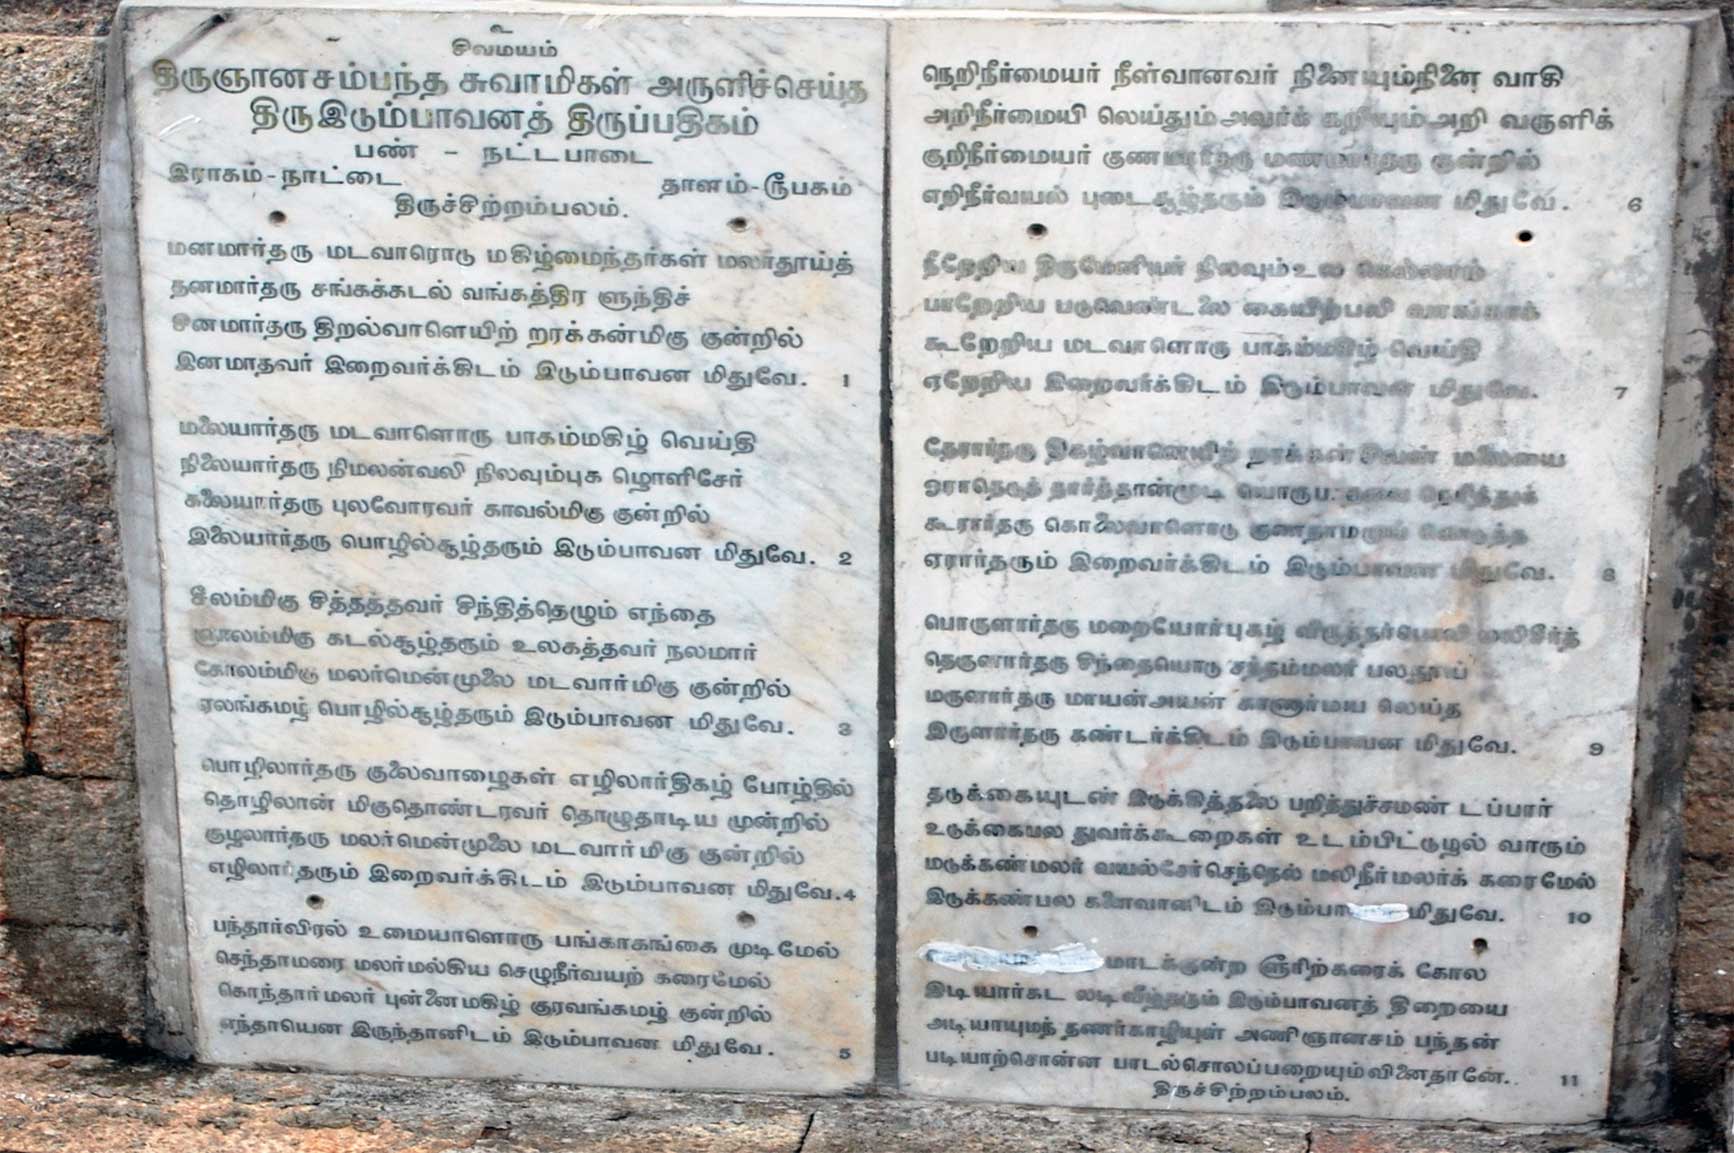 உ
சிவமயம்
திருஞானசம்பந்த சுவாமிகள் அருளிச்செய்த
திருஇடும்பாவனத் திருப்பதிகம்
பண் - நட்டபாடை
இராகம்-நாட்டை தாளம்-ரூபகம்
திருச்சிற்றம்பலம்.
மனமார்தரு மடவாரொடு மகிழ்மைந்தர்கள் மலர்தூய்த்
தனமார்தரு சங்கக்கடல் வங்கத்திர ளுந்திச்
சினமார்தரு திறல்வாளெயிற் றரக்கன்மிகு குன்றில்
இனமாதவர் இறைவர்க்கிடம் இடும்பாவன மிதுவே. 1
மலையார்தரு மடவாளொரு பாகம்மகிழ் வெய்தி
நிலையார்தரு நிமலன்வலி நிலவும்புக ழொளிசேர்
கலையார்தரு புலவோரவர் காவல்மிகு குன்றில்
இலையார்தரு பொழில்சூழ்தரும் இடும்பாவன மிதுவே. 2
சீலம்மிகு சித்தத்தவர் சிந்தித்தெழும் எந்தை
ஞாலம்மிகு கடல்சூழ்தரும் உலகத்தவர் நலமார்
கோலம்மிகு மலர்மென்முலை மடவார்மிகு குன்றில்
ஏலங்கமழ் பொழில்சூழ்தரும் இடும்பாவன மிதுவே. 3
பொழிலார்தரு குலைவாழைகள் எழிலார்திகழ் போழ்தில்
தொழிலான் மிகுதொண்டரவர் தொழுதாடிய முன்றில்
குழலார்தரு மலர்மென்முலை மடவார்மிகு குன்றில்
எழிலார்தரும் இறைவர்க்கிடம் இடும்பாவன மிதுவே.4
பந்தார்விரல் உமையாளொரு பங்காகங்கை முடிமேல்
செந்தாமரை மலர்மல்கிய செழுநீர்வயற் கரைமேல்
கொந்தார்மலர் புன்னைமகிழ் குரவங்கமழ் குன்றில்
எந்தாயென இருந்தானிடம் இடும்பாவன மிதுவே. 5
நெறிநீர்மையர் நீள்வானவர் நினையும்நினை வாகி
அறிநீர்மையி லெய்தும்அவர்க் கறியும்அறி வருளிக்
குறிநீர்மையர் குணமார்தரு மணமார்தரு குன்றில்
எறிநீர்வயல் புடைசூழ்தரும் இடும்பாவன மிதுவே. 6
நீறேறிய திருமேனியர் நிலவும்உல கெல்லாம்
பாறேறிய படுவெண்டலை கையிற்பலி வாங்காக்
கூறேறிய மடவாளொரு பாகம்மகிழ் வெய்தி
ஏறேறிய இறைவர்க்கிடம் இடும்பாவன மிதுவே. 7
தேரார்தரு திகழ்வாளெயிற் றரக்கன்சிவன் மலையை
ஓராதெடுத் தார்த்தான்முடி யொருப. தவை நெரித்துக்
கூரார்தரு கொலைவாளொடு குணநாமமுங் கொடுத்த
ஏரார்தரும் இறைவர்க்கிடம் இடும்பாவன மிதுவே. 8
பொருளார்தரு மறையோர்புகழ் விருத்தர்பொலி மலிசீர்த்
தெருளார்தரு சிந்தையொடு சந்தம்மலர் பலதூய்
மருளார்தரு மாயன்அயன் காணார்மய லெய்த
இருளார்தரு கண்டர்க்கிடம் இடும்பாவன மிதுவே. 9
தடுக்கையுடன் இடுக்கித்தலை பறித்துச்சமண் டப்பார்
உடுக்கைபல துவர்க்கூறைகள் உடம்பிட்டுழல் வாரும்
மடுக்கண்மலர் வயல்சேர்செந்நெல் மலிநீர்மலர்க் கரைமேல்
இடுக்கண்பல களைவானிடம் இடும்பா மிதுவே. 10
மாடக்குன்ற ளூரிற்கரைக் கோல
இடியார்கட லடிவீழ்தரும் இடும்பாவனத் திறையை
அடியாயுமந் தணர்காழியுள் அணிஞானசம் பந்தன்
படியாற்சொன்ன பாடல்சொலப்பறையும்வினைதானே.. 11
திருச்சிற்றம்பலம்.